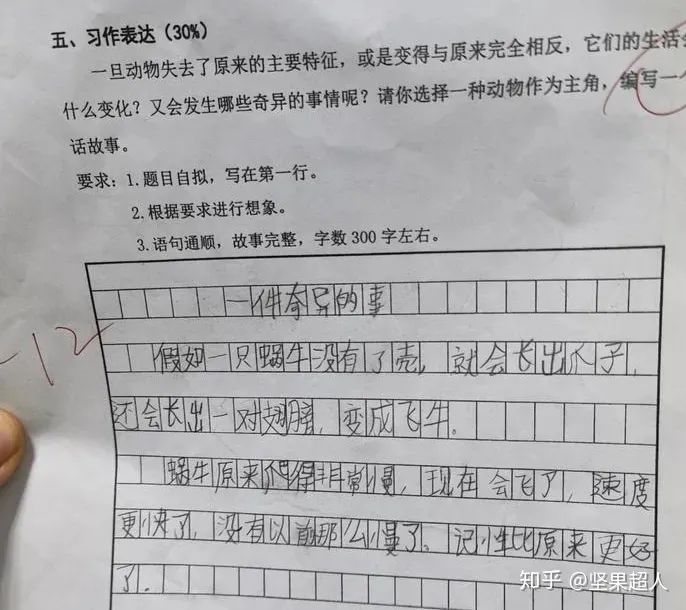 五、习作表达（30%）
一旦动物失去了原来的主要特征，或是变得与原来完全相反，它们的生活会
什么变化？又会发生哪些奇异的事情呢？请你选择一种动物作为主角，编写一个
话故事。
要求：1.题目自拟，写在第一行。
2.根据要求进行想象。
3.语句通顺，故事完整，字数300字左右。
一件奇异的事
-12
假如一只蜗牛没有了壳，就会长出爪子，
还会长出一对翅膀，变成飞牛。
蜗牛原来爬得非常慢，现在会飞了，速度
更快了，没有以前那么慢了。记性比原来更好
了。
知乎 @坚果超人